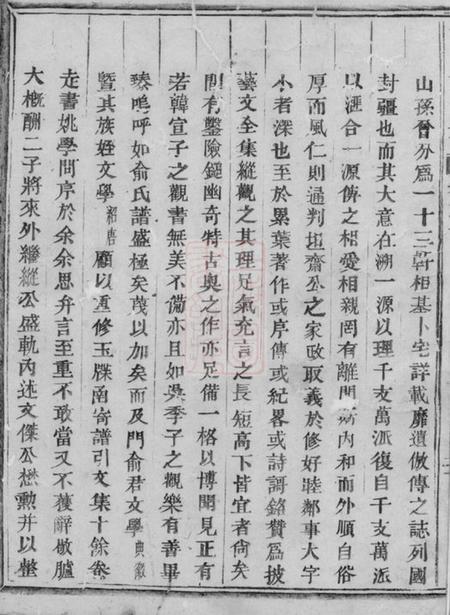 山孫晉外爲一十三斬相基卜宅詳載靡遺倣傳之誌列國
封疆也而其大意在溯一源以理千支萬派復自千支萬派
以滙合一源俾之相愛相親罔有離間斯内和而外順自俗
厚而風仁則通判坦齋公之家政取義於修好睦鄰事大字
小者深也至於累葉著作或序傳或紀畧或詩謌銘贊爲披
藝文全集縱觀之其理足氣充言之長短高下皆宜者尙矣
間有鑿險鎚幽奇特古奥之作亦足備一格以博聞見正有
若韓宣子之觀書無美不僃亦且如吳季子之觀樂有善畢
臻嗚呼如俞氏譜盛極矣蔑以加矣而及門俞君文學典徽
暨其族姪文學紹唐顧以重修玉牒甫寄譜引文集十餘卷
走書姚學問序於余余思弁言至重不敢當又不獲辭敬臚
大概酬二子將來外繼縱公盛軌内述文傑公懋勲并以整